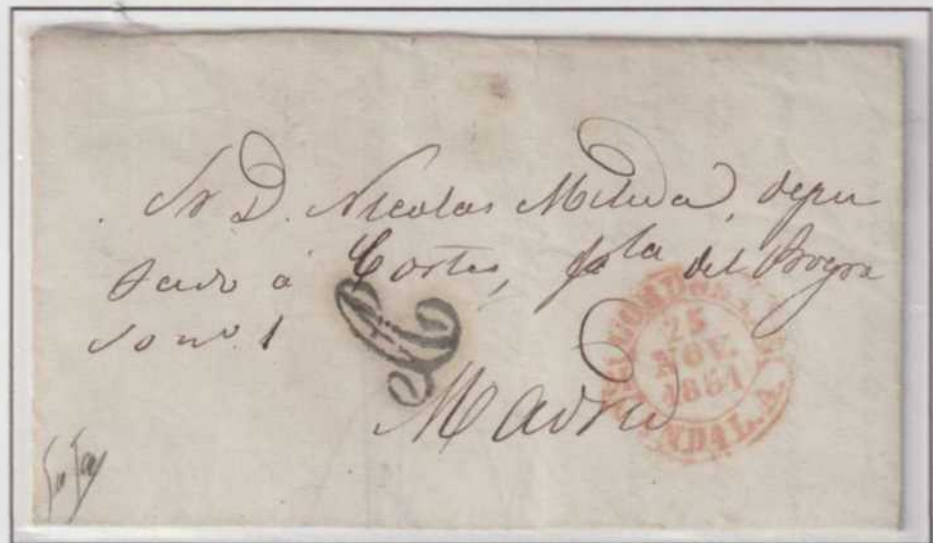 Sr D. Nicolas Milu da, depu
tado á Cortes, pla del Progre
so no. 1
Madrid
CORDOBA
25
NOV.
1861
ANDAL. A.